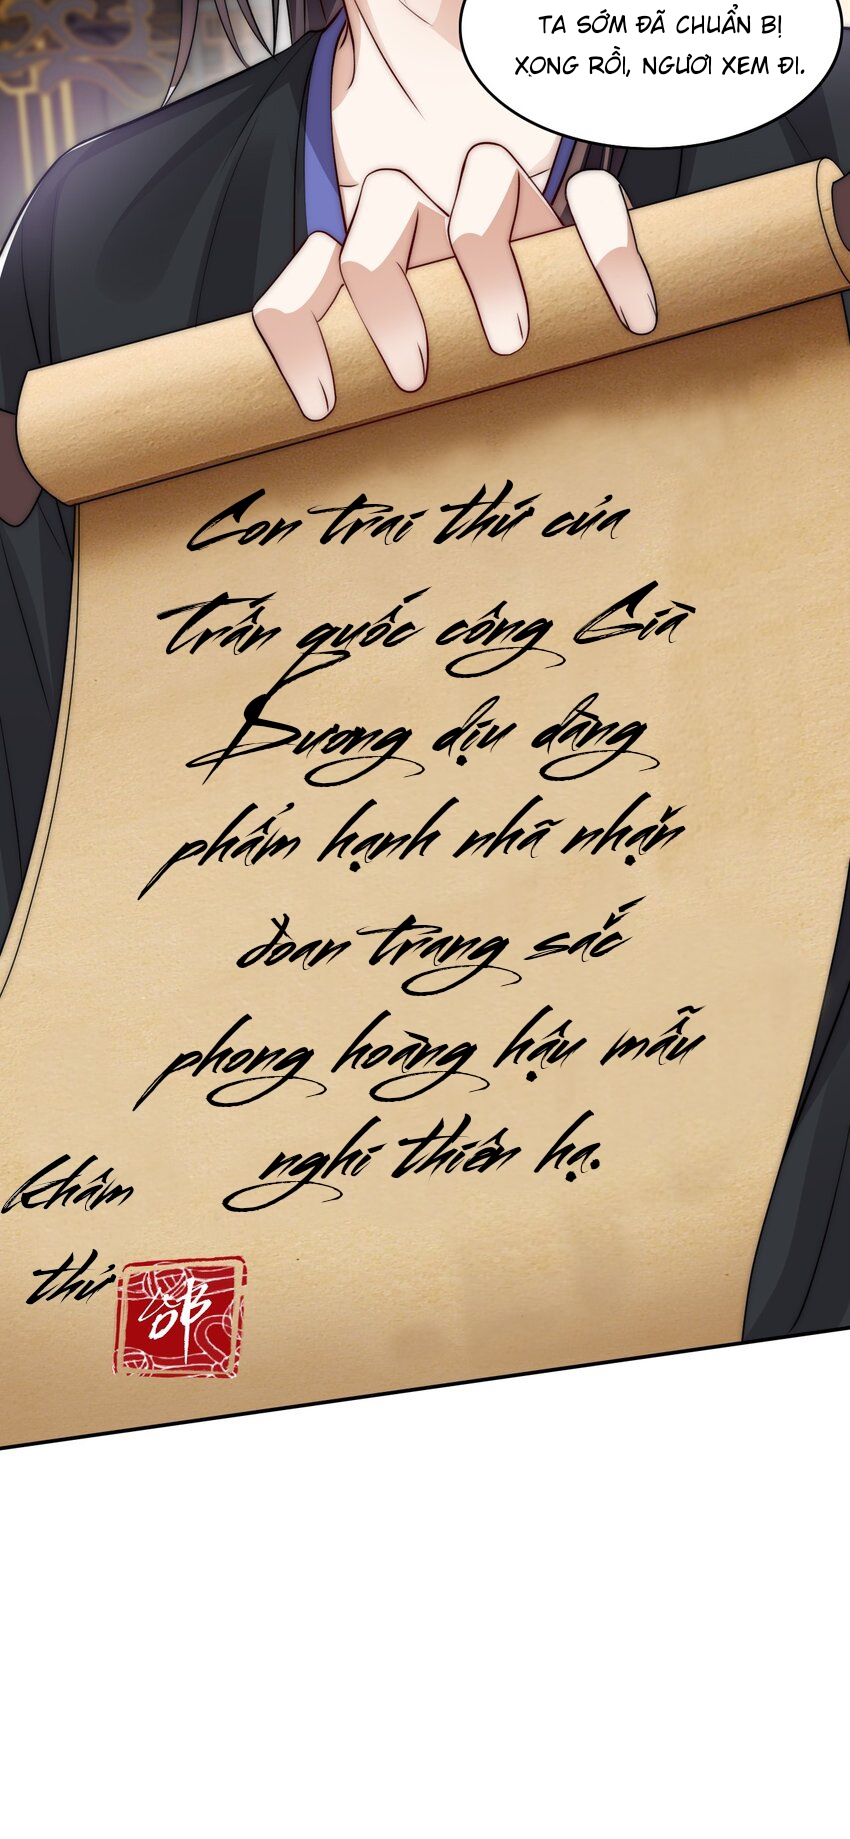 TA SỚM ĐÃ CHUẨN BỊ
XONG RỒI, NGƯƠI XEM ĐI.
Con trai thứ của
Trấn quốc công Già
Dương dịu dàng
phẩm hạnh nhã nhặn
đoan trang sắc
phong hoàng hậu mẫu
nghi thiên hạ.
khâm
thử